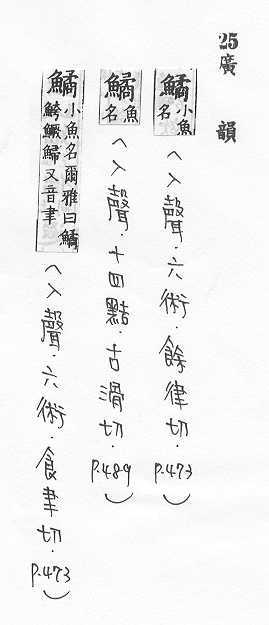 25 廣韻
鱊小魚名〈入聲.六術.餘律切.P.473〉
鱊魚名〈入聲.十四黠.古滑切.P.489〉
鱊小魚名爾雅曰鱊鮬鱖鯞又音聿〈入聲.六術.食聿切.P.473〉